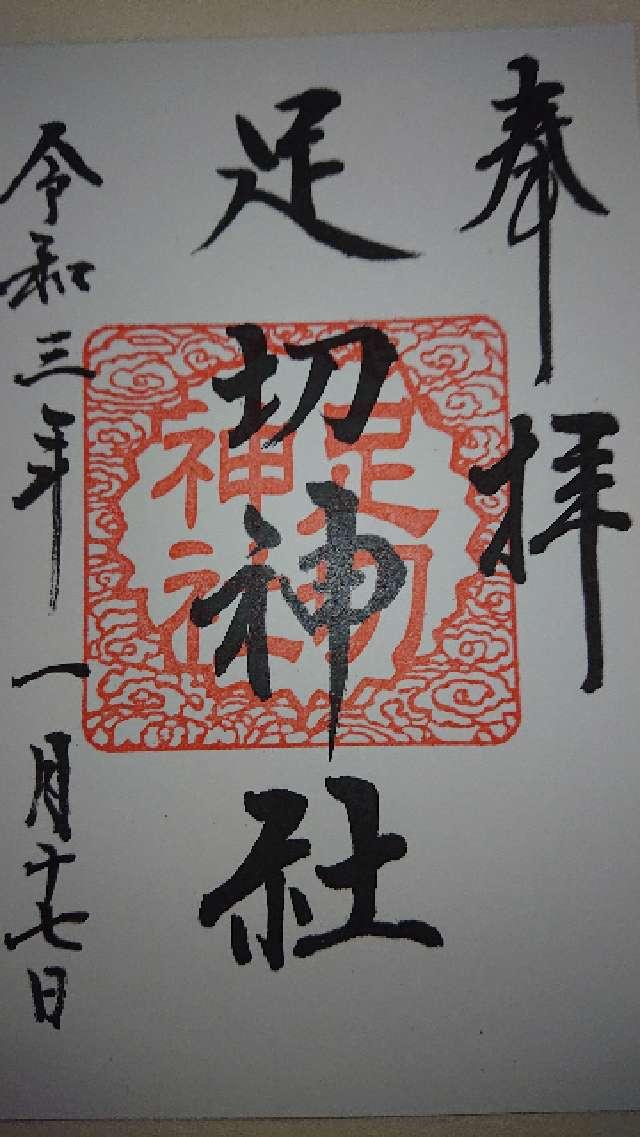 奉拝
足切神社
足切
神社
令和三年一月十七日